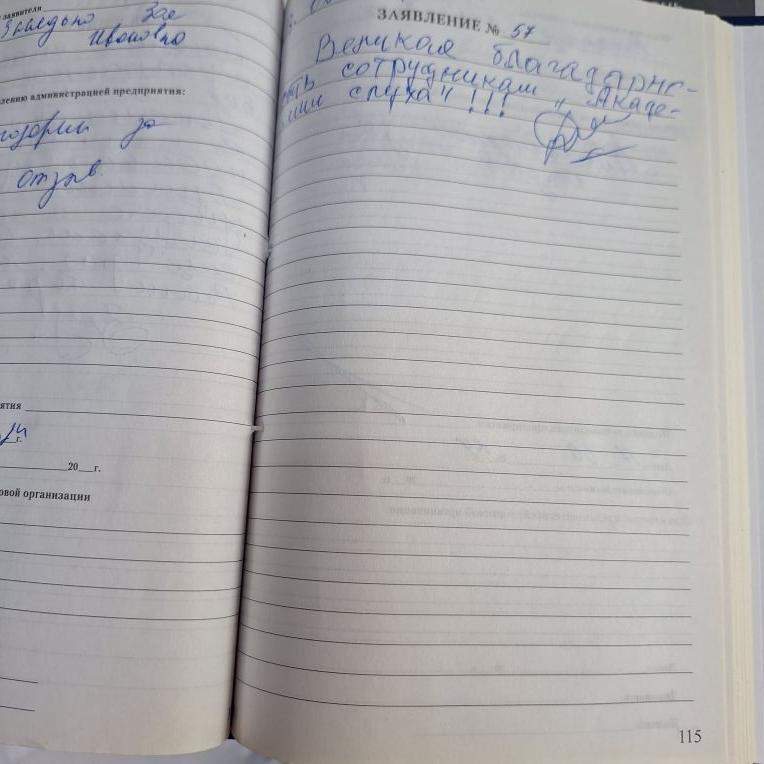 заявителя
Зое
Ивановно
лению администрацией предприятия:
за
отзыв
ятия
г.
20 г.
овой организации
ЗАЯВЛЕНИЕ № 57
Великая благадарнс-
сотрудникам „Акаде-
мии слуха" !!!
115